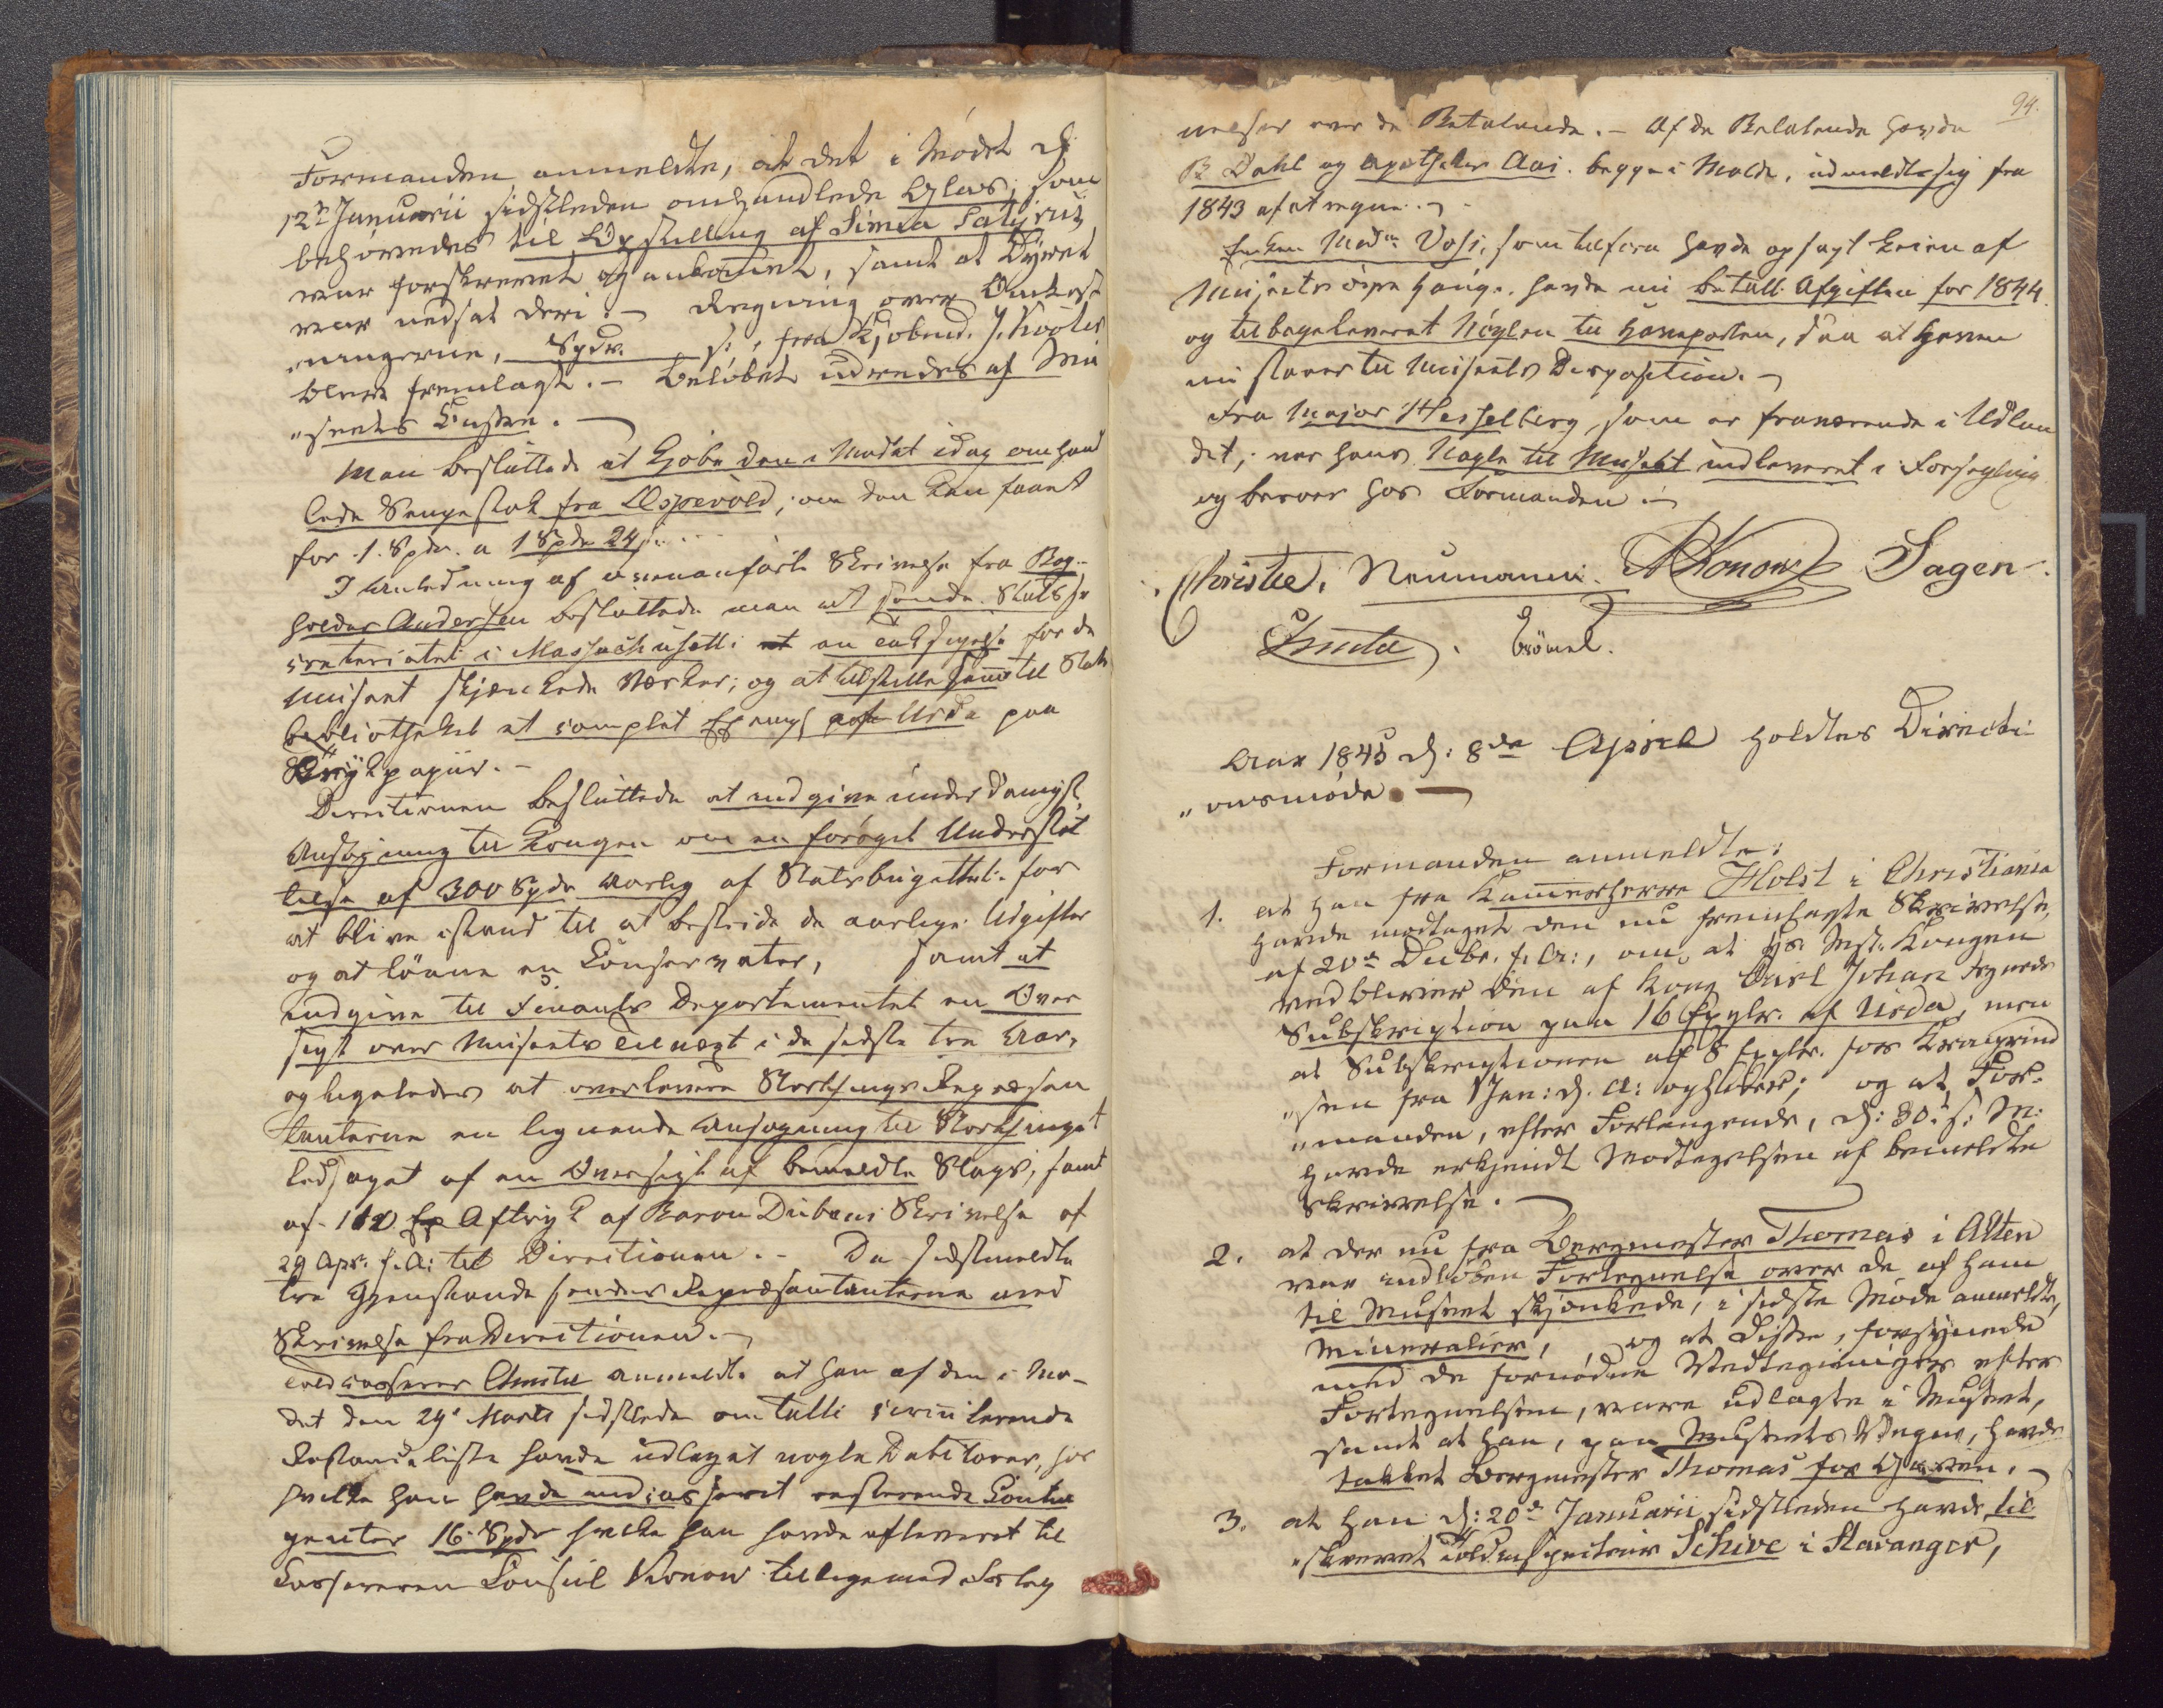 Formanden anmeldte, at det i Mødet d:
12te Januarii sidstleden omhandlede Glas, som
behøvedes til Opstilling af Simia Satyrus,
var forskrevet og ankommet, samt at Dyret
var nedsat deri. – Regning over Omkost
„ningerne, Spdr. s:, fra Kjøbmd. J.
blev fremlagt. – Beløbet udredes af Mu
„seets Kasse. –
Man besluttede at kjøbe den i Mødet idag omhand
lede Sengestok fra Espevold, om den kan faaes
for 1. Spdr. a 1 Spdr 24 s.
I Anledning af ovenanførte Skrivelse fra Bog-
holder Andersen besluttede man at sende Stats Se
cretariatet i Massachusetts en Taksigelse for de
Museet skjænkede Værker; og at tilstille samme til Stats
bibliotheket et complet Expl af Urda paa
Trykpapiir. –
Directionen besluttede at indgive underdanigst
Ansøgning til Kongen om en forøget Understøt
telse af 300 Spdr aarlig af Statsbugettet for
at blive istand til at bestride de aarlige Udgifter
og at lønne en Conservator, samt at
indgive til Finants Departementet en Over
sigt over Museets Tilvæxt i de sidste tre Aar,
og ligeledes at overlevere Storthings Repræsen
tanterne en lignende Ansøgning til Storthinget
ledsaget af en Oversigt af bemeldte Slags, samt
af 110 Aftryk af Baron Dübens Skrivelse af
29 Apr. f. A: til Directionen. – De sidstmeldte
tre Gjenstande sendes Repræsentanterne med
Skrivelse fra Directionen. –
Toldcasserer Christie anmeldte at han af den i Mø-
det den 29de Marts sidstleden omtalte circulerende
Restanceliste havde udtaget nogle Debitorer, hos
hvilke han havde indcasseret resterende Contin
genter 16 Spdr hvilke han havde afleveret til
Cassereren Consul Konow tilligemed Forteg
94.
nelser over de Betalende. – Af de Betalende havde
B Dahl og Apotheker Aas. begge i Molde, udmeldt sig fra
1843 af at regne. –
Enken Madm Voss, som tilforn havde opsagt Leien af
Museets øvre Hauge, havde nu betalt Afgiften for 1844
og tilbageleveret Nøglen til Haveporten, saa at Haven
nu staaer til Museets Disposition. –
Fra Major Hesselberg, som er fraværende i Udlan
det, var hans Nøgle til Museet indleveret i Forsegling
og beroer hos Formanden. –
Christie. Neumann. A Konow Sagen.
Irmita. Grønd.
Aar 1845 d: 8de April holdtes Directi
„onsmøde. –
Formanden anmeldte:
1. at han fra Kammerherre Holst i Christiania
havde modtaget den nu fremlagte Skrivelse,
af 20de Decbr. f. A:, om, at Hs. Mst. Kongen
vedbliver den af Kong Carl Johan tegnede
Subskription paa 16 Explr. af Urda, men
at Subskriptionen af 8 Explr. for Kronprind
„sen fra 1 Jan: d. A: ophører; og at For-
„manden, efter Forlangende, d: 30te s: M:
havde erkjendt Modtagelsen af bemeldte
Skrivelse. –
2. at der nu fra Bergmester Thomas i Alten
var indløben Fortegnelse over de af ham
til Museet skjænkede, i sidste Møde anmeldte,
Mineralier, og at disse, forsynede
med de fornødne Vedtegninger efter
Fortegnelsen, vare udlagte i Museet,
samt at han, paa Museets Vegne, havde
takket Bergmester Thomas for Gaven. –
3. at han d: 20de Januarii sidstleden havde til
„skrevet Toldinspecteur Schive i Stavanger,